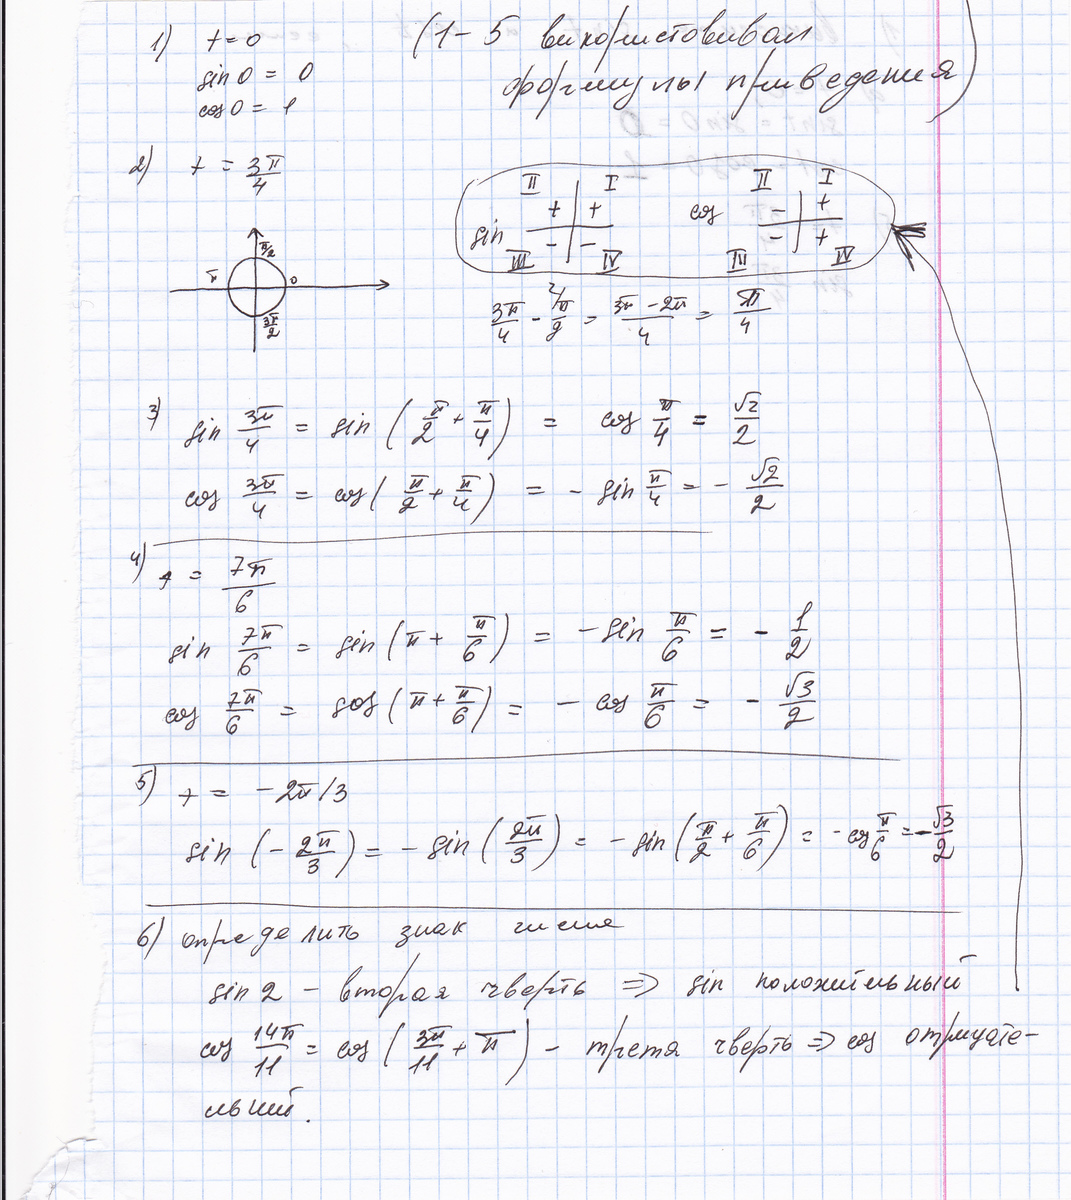 1) t=0 (1-5 використовивал
sin 0 = 0 формулы приведения)
cos 0 = 1
2) t = 3π/4
II I II I
sin + + cos - +
- - - +
III IV III IV
π/2
π 0
3π/2
3π/4 - π/2 = (3π-2π)/4 = π/4
3) sin 3π/4 = sin (π/2 + π/4) = cos π/4 = √2/2
cos 3π/4 = cos (π/2 + π/4) = - sin π/4 = - √2/2
4) t = 7π/6
sin 7π/6 = sin (π + π/6) = - sin π/6 = - 1/2
cos 7π/6 = cos (π + π/6) = - cos π/6 = - √3/2
5) t = -2π/3
sin (- 2π/3) = - sin (2π/3) = - sin (π/2 + π/6) = - cos π/6 = - √3/2
6) определить знак числа
sin 2 - вторая чверть => sin положительный
cos 14π/11 = cos (3π/11 + π) - третя чверть => cos отрицате-
льний.